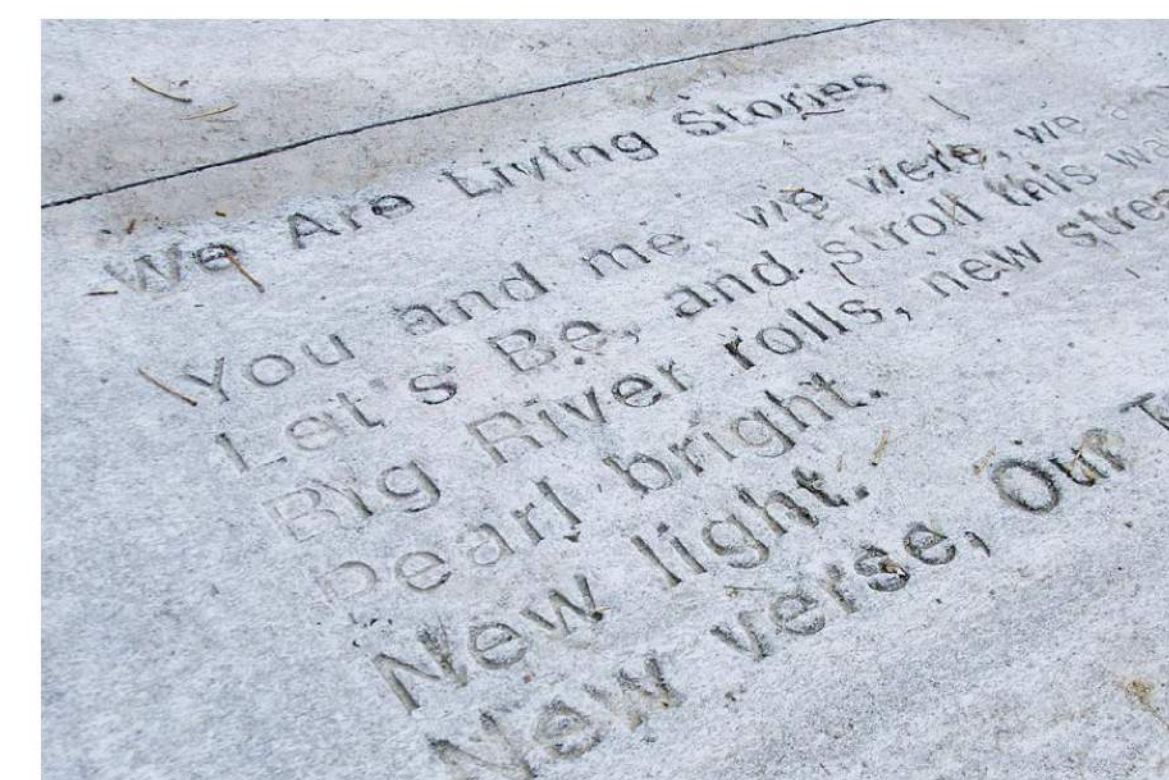 We Are Living Stories
You and me, we were, we
Let's Be, and stroll this
Big River rolls, new
Pearl bright.
New light.
New verse, Our